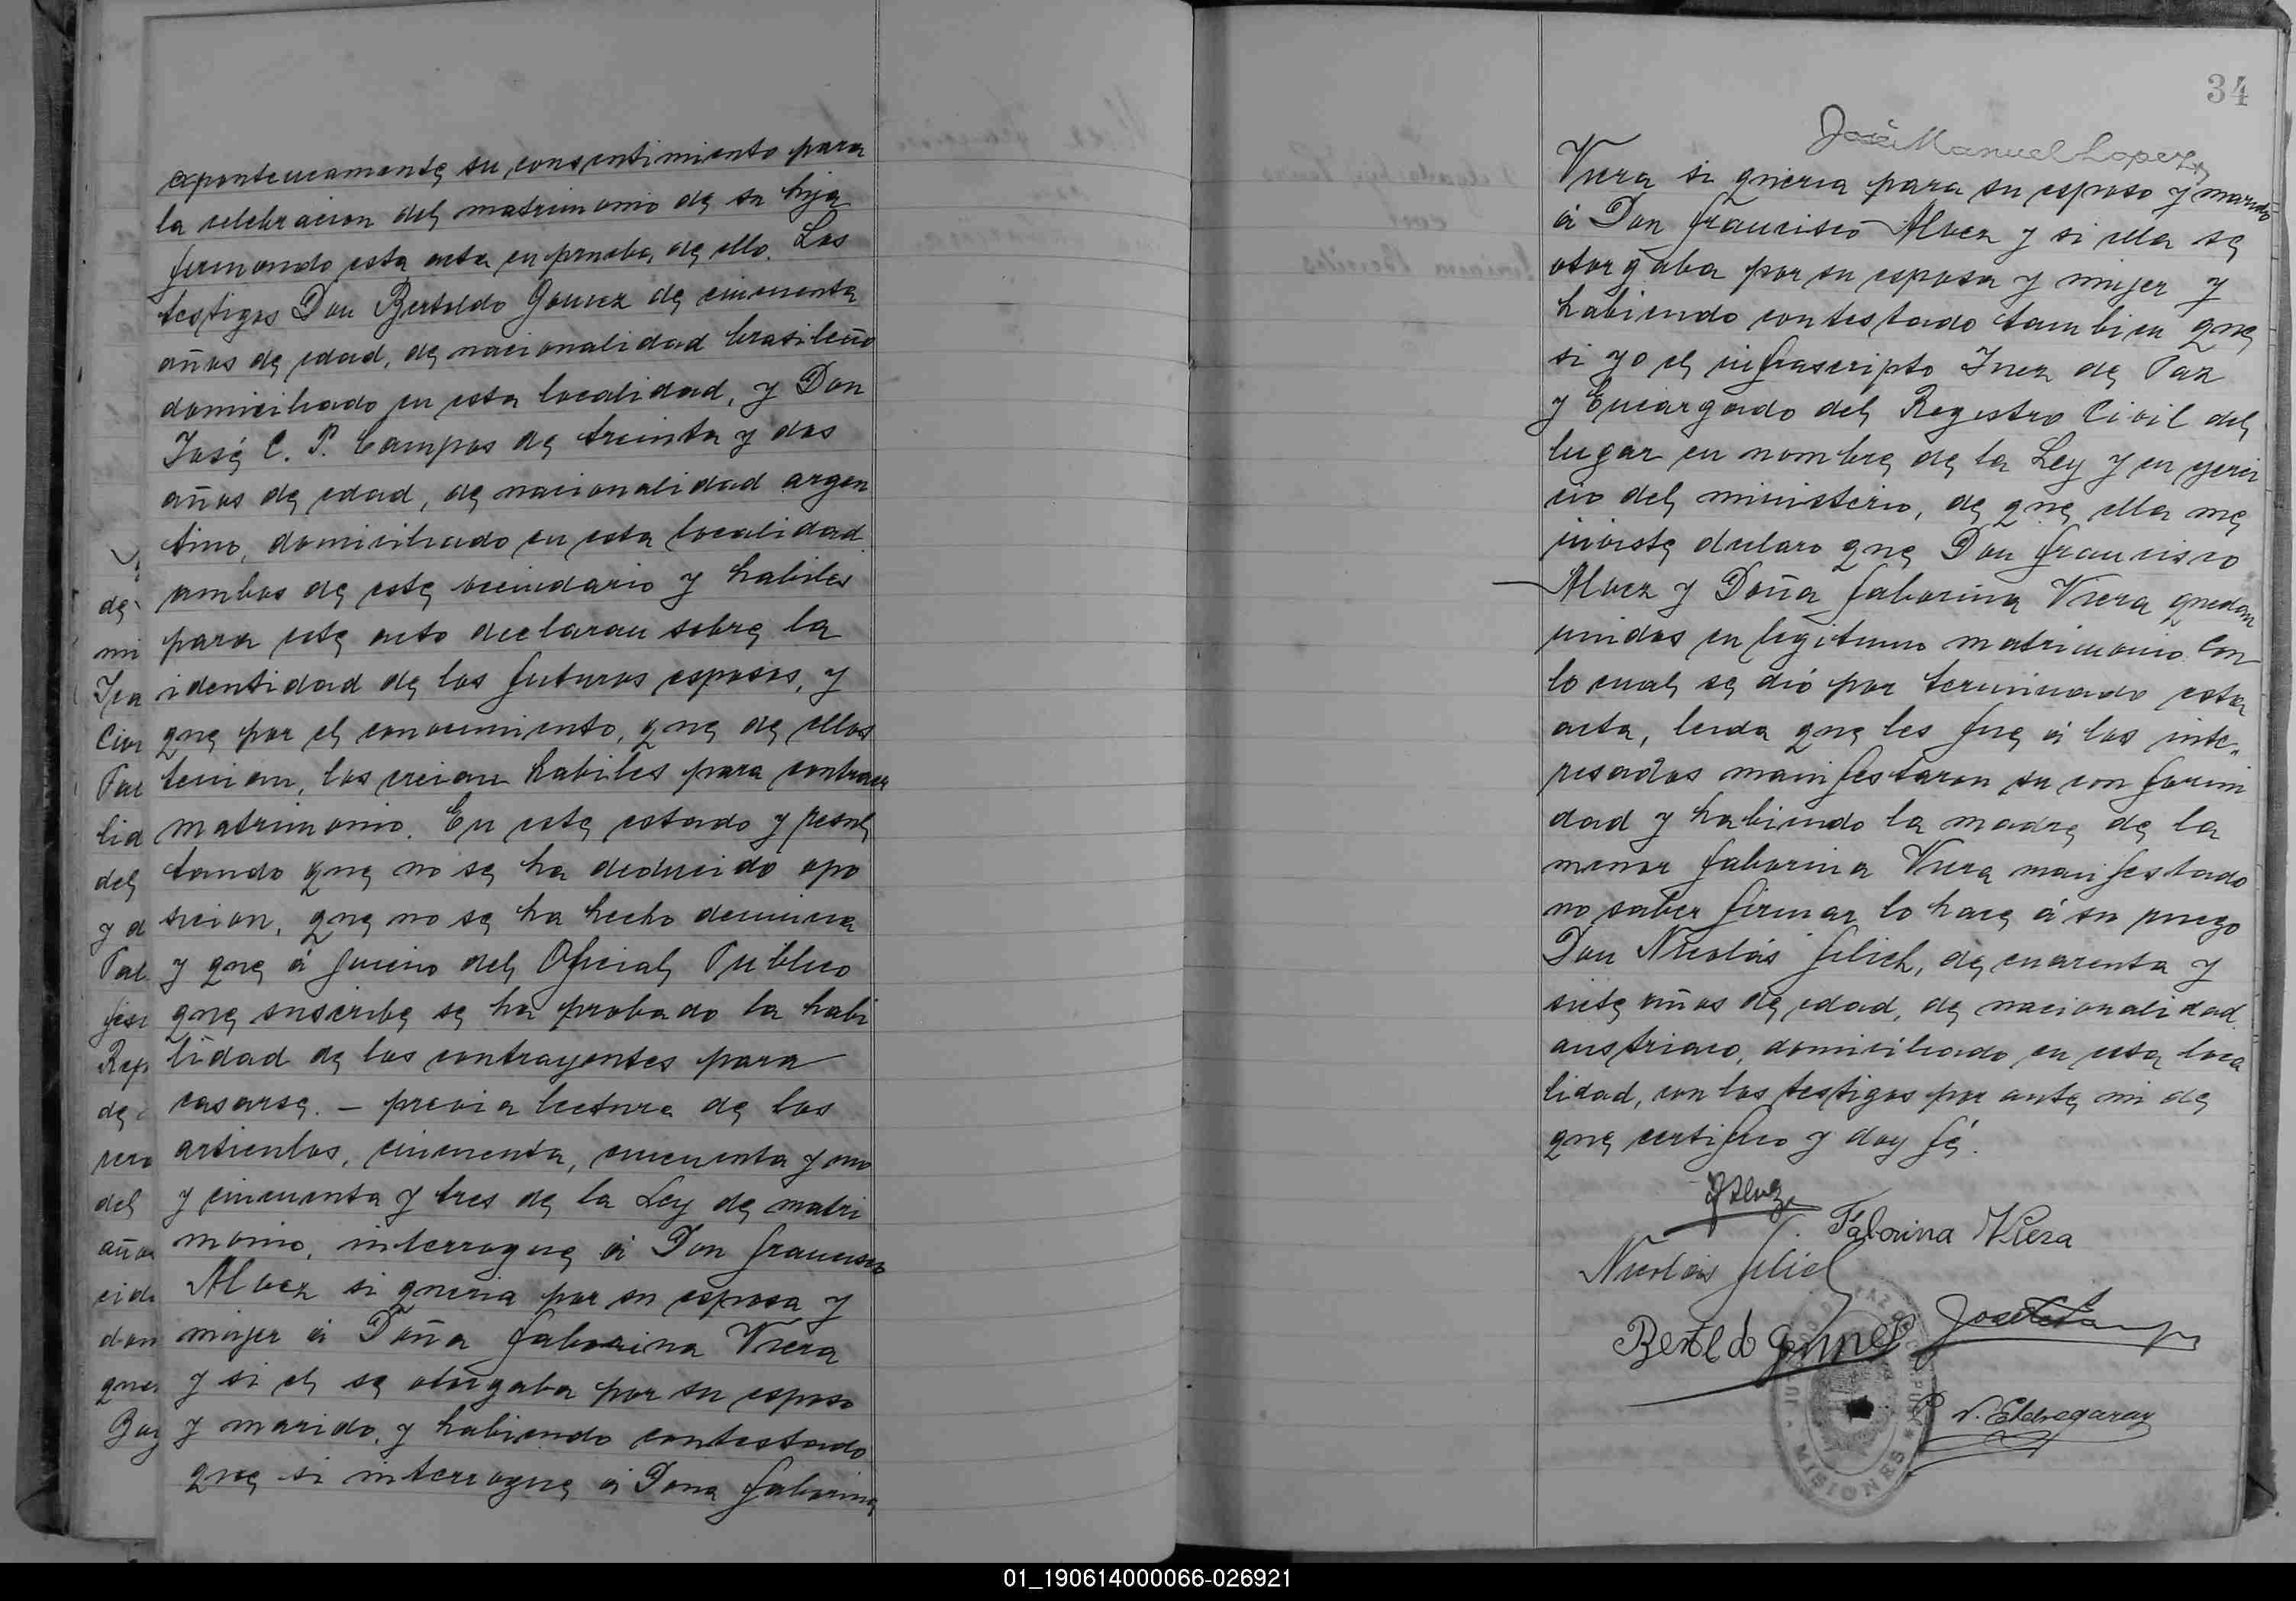 expontencamente su consentimiento para
la celebracion del matrimonio de su hija
firmando esta acta en prueba de ello. Los
testigos Don Bertoldo Gomez de cincuenta
años de edad, de nacionalidad brasileño
domiciliado en esta localidad, y Don
José C. P. Campos de treinta y dos
años de edad, de nacionalidad argen
tino, domiciliado en esta localidad
ambos de este vecindario y habiles
para este acto declaran sobre la
identidad de los futuros esposos, y
que por el conocimiento, que de ellos
tenian, los creian habiles para contraer
matrimonio. En este estado y resul
tando que no se ha deducido opo
sicion, que no se ha hecho denuncia
y que á juicio del Oficial Publico
que suscribe se ha probado la habi
lidad de los contrayentes para
casarse. – previa lectura de los
articulos, cincuenta, cincuenta y uno
y cincuenta y tres de la Ley de matri
monio, interrogue á Don Francisco
Alvez si queria por su esposa y
mujer á Doña Faborina Viera
y si el se otorgaba por su esposo
y marido, y habiendo contestado
que si interrogue á Dona Faborina
de
mi
Civi
lid
del
y d
Rep
de
del
años
don
que
34
José Manuel Lopez
Viera si queria para su esposo y marido
á Don Francisco Alvez y si ella se
otorgaba por su esposa y mujer y
habiendo contestado tambien que
si yo el infrascripto Juez de Paz
y Encargado del Registro Civil del
lugar en nombre de la Ley y en ejerci
cio del ministerio, de que ella me
inviste declaro que Don Francisco
Alvez y Doña Faborina Viera quedan
unidos en legitimo matrimonio. Con
lo cual se dió por terminado esta
acta, leida que les fue á los inte-
resados manifestaron su conformi
dad y habiendo la madre de la
menor Faborina Viera manifestado
no saber firmar lo hace á su ruego
Don Nicolás Jilich, de cuarenta y
siete años de edad, de nacionalidad
austriaco, domiciliado en esta loca
lidad, con los testigos por ante mi de
que certifico y doy fé.
Faborina Viera
Nicolás Jilich
Bertoldo Gomes
N. Etchegaray
MISIONES
01_190614000066-026921